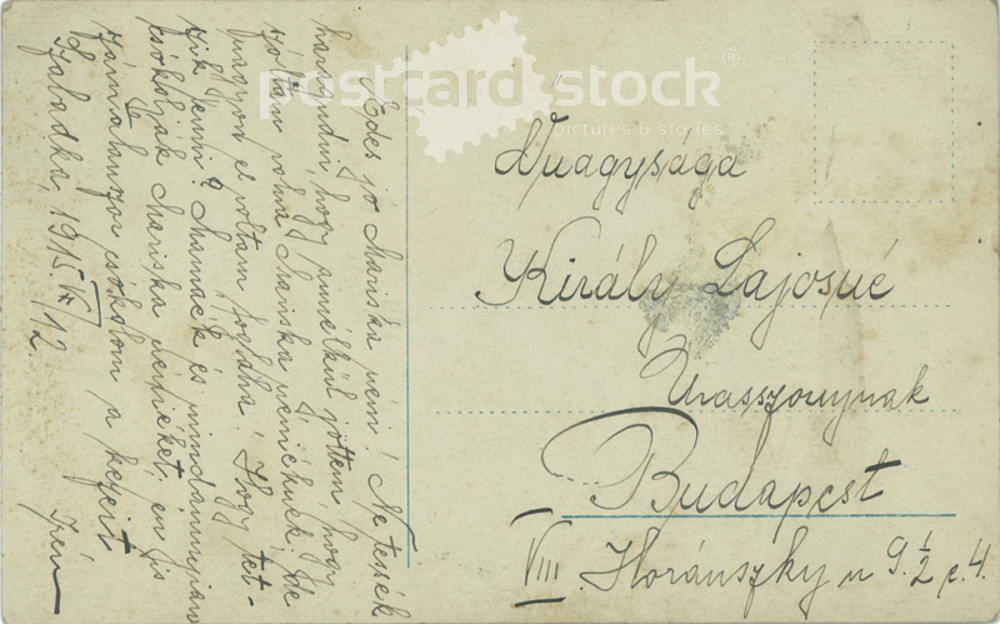 Édes jó Mariska néni! Ne tessék
haragudni, hogy annélkül jöttem, hogy
szóltam volna Mariska néniéknek, de
nagyon el voltam foglalva! Hogy tet-
szik lenni? Mamáék és mindannyian
csókolják Mariska néniéket, én is
számtalanszor csókolom a kezeit
Szabadka, 1915. 12. Irén
Nnagysága
Király Lajosné
Urasszonynak
Budapest
VIII. Horánszky u 9. 1/2 e. 4.
postcard stock®
pictures & stories